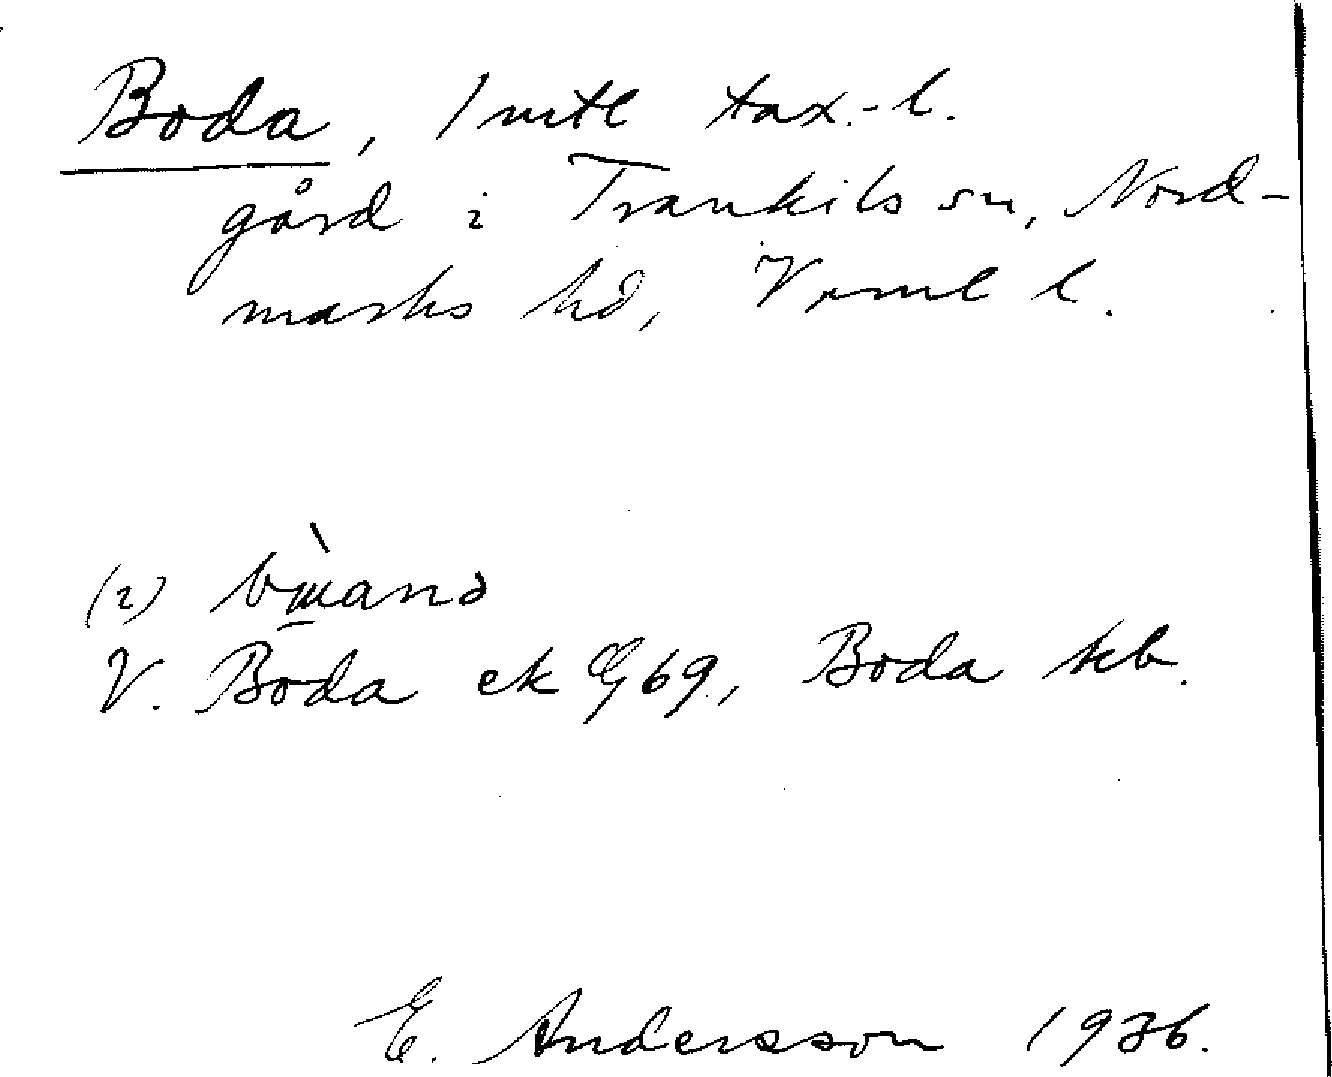 Boda, 1 mtl tax.-l.
gård i Trankils sn, Nord-
marks hd, Vrml l.
(i)
V. Boda ek G 69., Boda kb.
E. Andersson 1936.